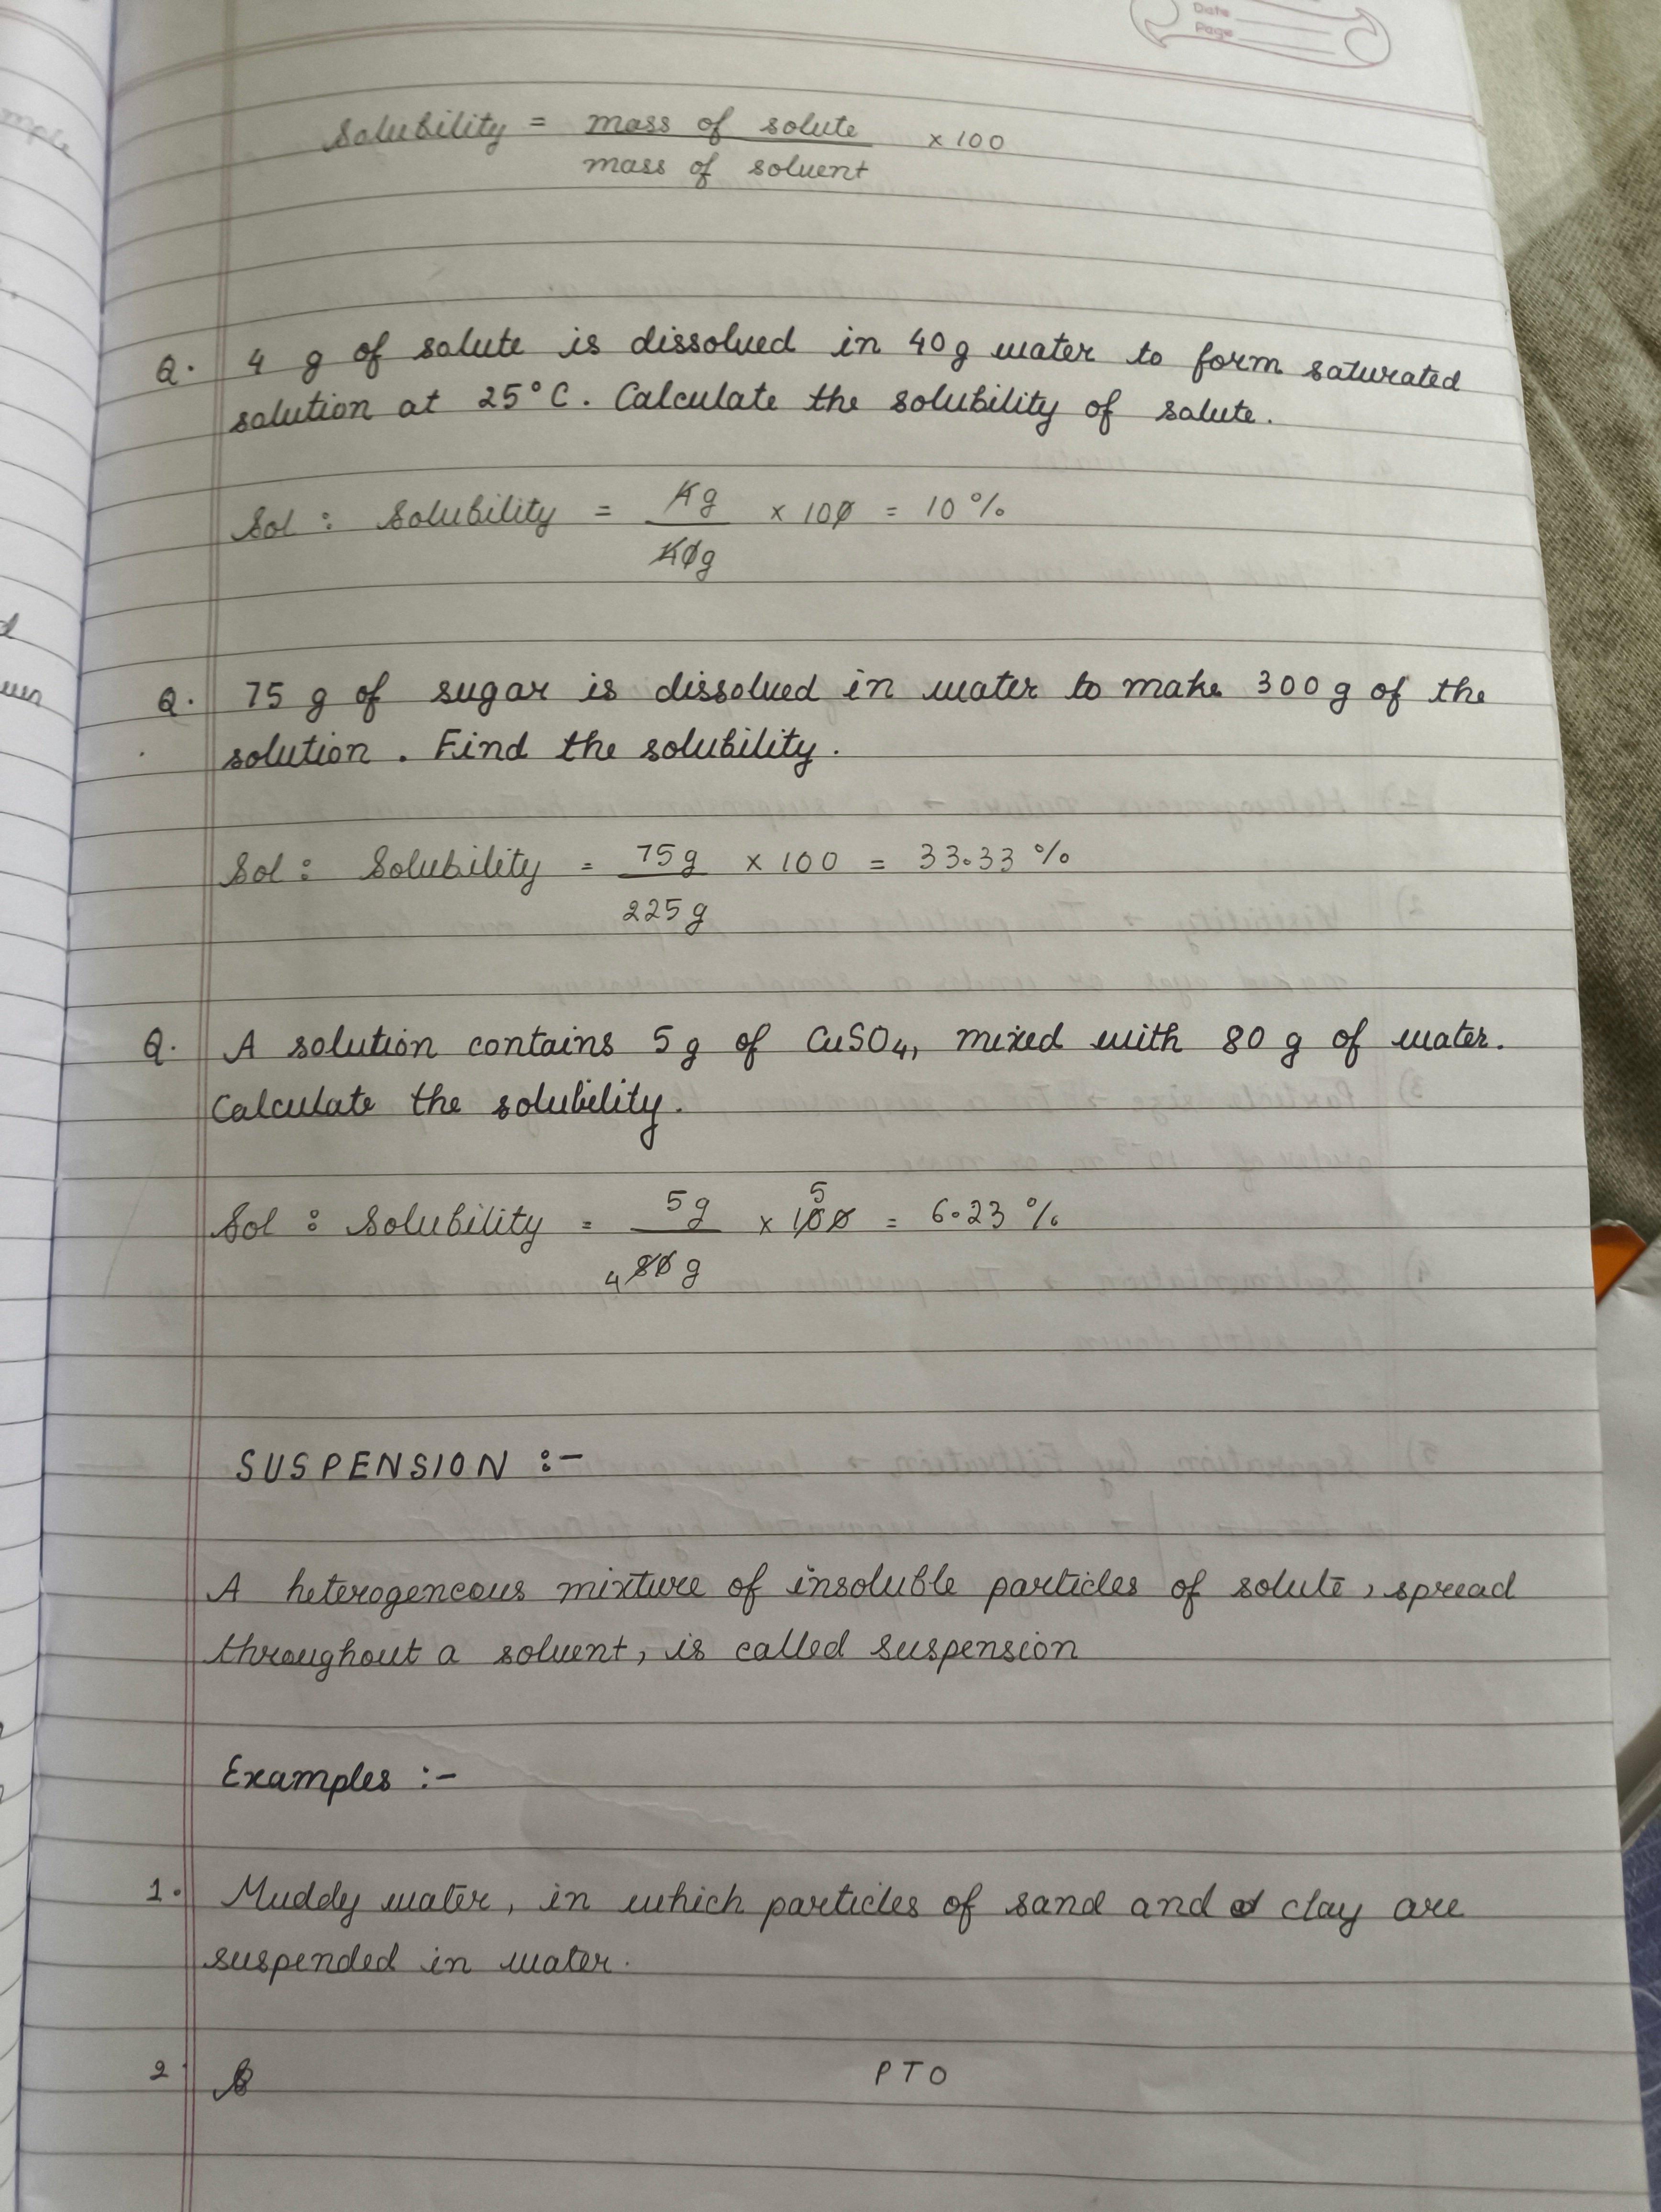 Date
Page
Solubility = mass of solute / mass of solvent × 100
Q. 4 g of solute is dissolved in 40g water to form saturated
solution at 25°C. Calculate the solubility of solute.
Sol : Solubility = 4g / 40g × 100 = 10 %
Q. 75 g of sugar is dissolved in water to make 300 g of the
solution. Find the solubility.
Sol : Solubility = 75g / 225g × 100 = 33.33 %
Q. A solution contains 5 g of CuSO4, mixed with 80 g of water.
Calculate the solubility.
5
Sol : Solubility = 5g / 80 g × 100 = 6.23 %
4
SUSPENSION :-
A heterogeneous mixture of insoluble particles of solute, spread
throughout a solvent, is called suspension
Examples :-
1. Muddy water, in which particles of sand and clay are
suspended in water.
2. PTO